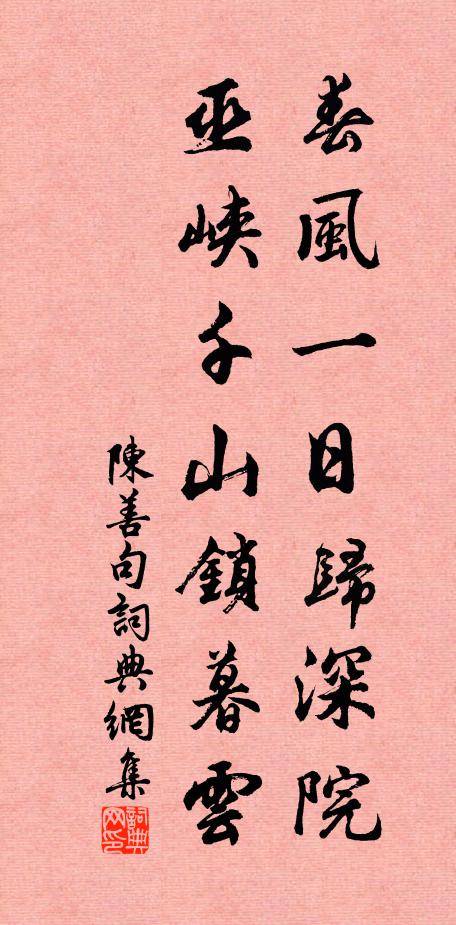 春風一日歸深院
巫峽千山鎖暮雲
陳善句詞典網集
詞典
网印